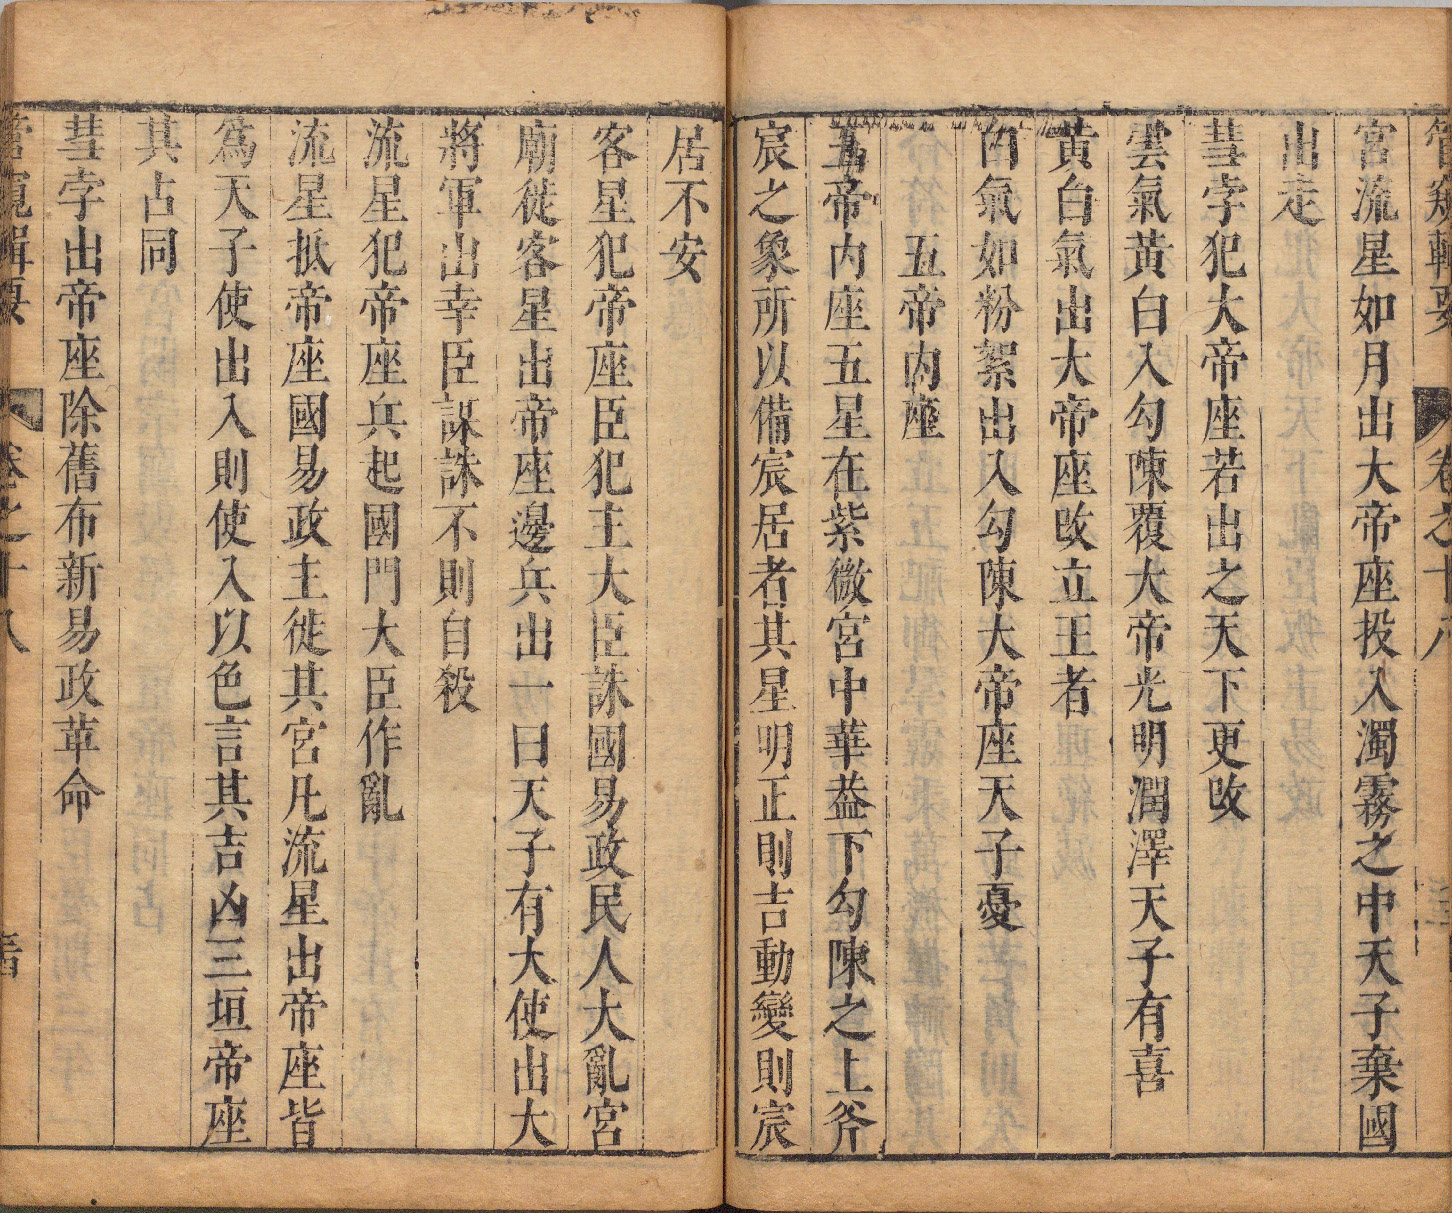 管窺輯要 卷之十八
宮流星如月出大帝座投入濁霧之中天子棄國
出走
彗孛犯大帝座若出之天下更改
雲氣黃白入勾陳覆大帝光明潤澤天子有喜
黃白氣出大帝座改立王者
白氣如粉絮出入勾陳大帝座天子憂
五帝內座
五帝內座五星在紫微宮中華葢下勾陳之上斧
宸之象所以備宸居者其星明正則吉動變則宸
居不安
客星犯帝座臣犯主大臣誅國易政民人大亂宮
廟徙客星出帝座邊兵出一曰天子有大使出大
將軍出幸臣謀誅不則自殺
流星犯帝座兵起國門大臣作亂
流星抵帝座國易政主徙其宮凡流星出帝座皆
為天子使出入則使入以色言其吉凶三垣帝座
其占同
彗孛出帝座除舊布新易政革命
管窺輯要 卷之十八